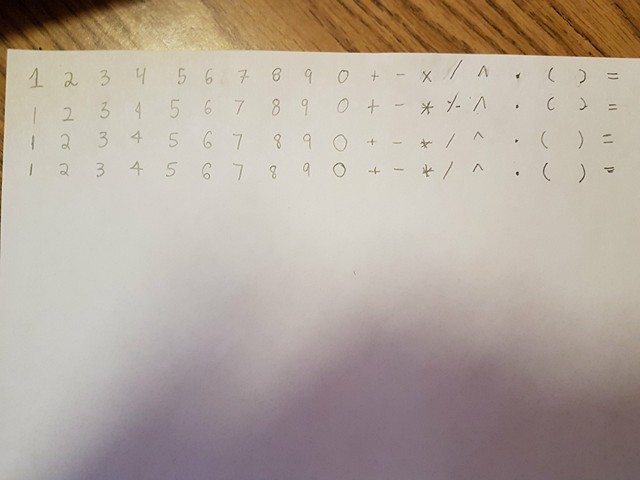 1 2 3 4 5 6 7 8 9 0 + - x / ^ . ( ) =
1 2 3 4 5 6 7 8 9 0 + - * ⁒ ^ . ( ) =
1 2 3 4 5 6 7 8 9 0 + - * / ^ . ( ) =
1 2 3 4 5 6 7 8 9 0 + - * / ^ . ( ) =